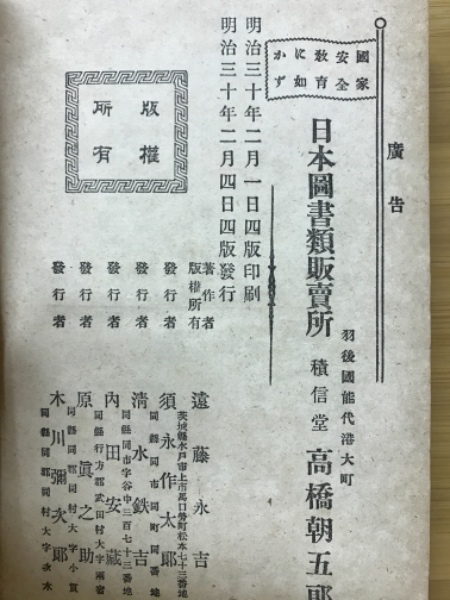 廣告
國家
安全
教育
に如
かず
日本圖書類販賣所
羽後國能代港大町
積信堂 高橋朝五郎
明治三十年二月一日四版印刷
明治三十年二月四日四版發行
版權
所有
著作者
版權所有
遠藤永吉
茨城縣水戸市上市馬口勞町松本七十三番地
發行者
須永作太郎
同縣同市同町同番地
發行者
清水鉄吉
同縣同市字谷中三百七十三番地
發行者
内田安藏
同縣行方郡武田村大字兩宿
發行者
原眞之助
同縣同郡同村大字小貫
發行者
木川彌次郎
同縣同郡同村大字次木